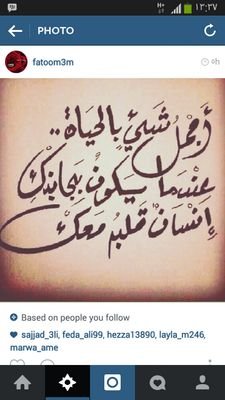 ١٣:٣٧
PHOTO
fatoom3m
6h
أجمل شيئ بالحياة..
عندما يكون بجانبك
إنسان قلبه معك
Based on people you follow
sajjad_3li, feda_ali99, hezza13890, layla_m246,
marwa_ame